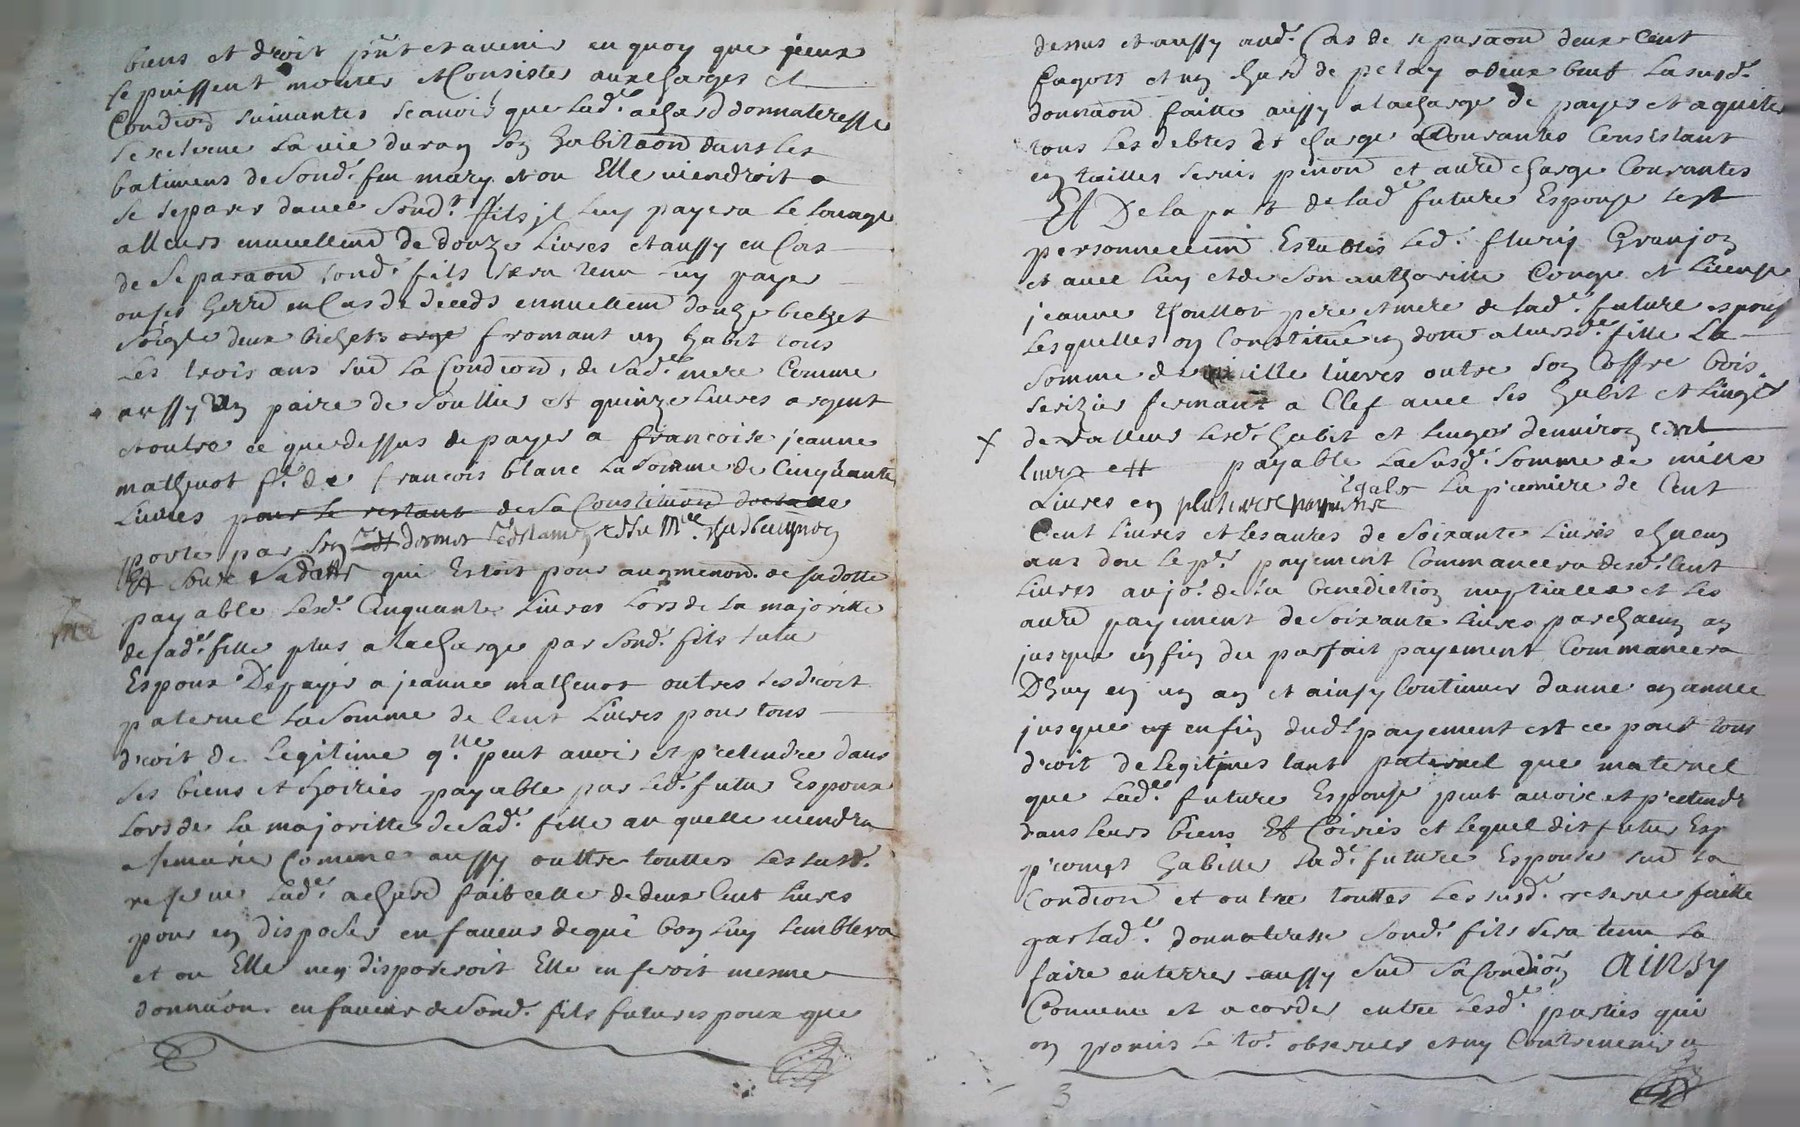 biens et droit pnt et avenir en quoy que jceux
se puissent monter et Consister aux charges et
Condions suivantes scauoir que Ladte achard donnateresse
se reserue sa uie duran son habitaon dans les
batimens de Sondt feu mary et ou Elle uiendroit a
se separer dauec Sondt ffils jl luy payera le louage
alleurs ennuellemt de douze Liures et aussy en Cas
de Separaon sondt fils sera tenu luy paye
ou ses herre en Cas de deceds ennuellemt douze bichet
soigle deux bichets fromant un habit tous
Les trois ans sur sa Condion, de Sade mere Comme
aussy un paire de Soullier et quinze Liures argent
et outre ce que dessus de payer a francoise jeanne
mathenot fe de francois blanc La Somme de Cinquante
Liures pour le restant de sa Constitution
porté par son
qui Estoit pour augmenon de sa dotte
payable Lesd. Cinquante Liures Lors de La majoritte
de sade fille plus a la charge par Sondt fils futu
Espoux De payer a jeanne mathenot outres ses droit
paternel La Somme de Cent Liures pour tous
droit de Legitime qlle peut auoir et pretendre dans
ses biens et hoiries payable par Ledt futur Espoux
Lors de La majoritte de Sade fille au quelle uiendra
a se marier Comme aussy outtre touttes Les susd.
reserue Lade achard fait celle de deux Cent Liures
pour en disposer en faueur de qui bon Luy semblera
et ou Elle nen disposeroit Elle en feroit mesme
donnaon en faueur de Sondt fils futur espoux que
dessus et aussy audt Cas de separaon deux Cent
fagots et un char de pelay a deux beuf La susde
donnaon faitte aussy a la charge de payer et aquiter
tous Les debtes et charge Courantes Consistant
en tailles seruis pention et autre charge Courantes
Et De la part de lade future Espouse s'est
personnellemt Establis Ledt fluriy Granjon
et auec luy et de son authoritte Conge et License
jeanne Thoullot pere et mere de lade future espous
Lesquelles on Constitué en dotte a leursde fille La
Somme de mille liures outre son Coffre bois
serizier fermant a Clef auec ses habit et linge
de Valleur Lesd. habit et linges denuiron cent
liure et payable La Susde Somme de mille
Liures en plusieurs payement Egals La premiere de Cent
Cent Liures et les autres de Soixante Liures chacun
ans dou le pr payement Commancera desdt Cent
Liures aujo. de la benediction nuptialle et les
autre payement de Soixante liures par chacun an
jusque enfin du parfait payement Commancera
D'huy en un an et ainsy Continuer danné en année
jusque enfin dudt payement et ce pour tous
droit de Legitimes tant paternel que maternel
que Lade future Espouse peut auoir et pretendre
dans leurs biens Et hoiries et lequel dit futur Esp
promet habille lade future Espouse sur sa
Condion et outre touttes Les susd. reserue faitte
par lade donnateresse Sondt fils sera tenu La
faire enterrer aussy sur sa Condion AINSY
Conuenu et acorder entre Lesd. parties qui
on promis Le to. obseruer et ny Contreuenir a
3